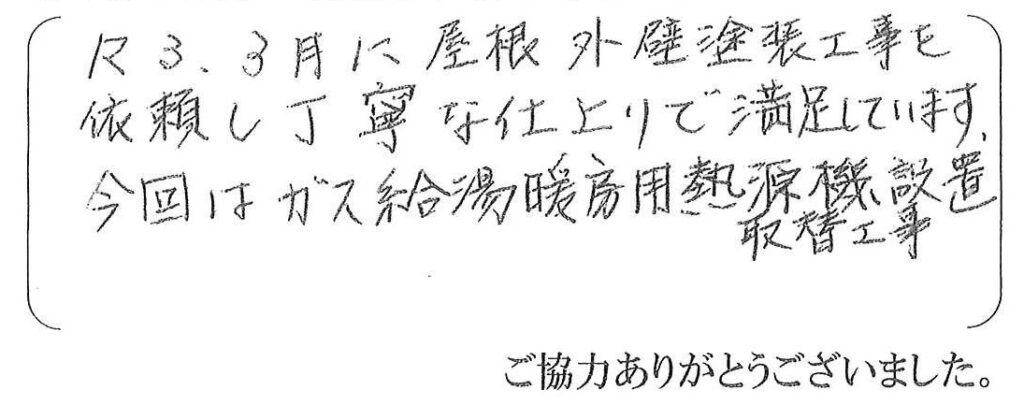 R3.3月に屋根外壁塗装工事を
依頼し丁寧な仕上りで満足しています.
今回はガス給湯暖房用熱源機設置
取替工事
ご協力ありがとうございました。